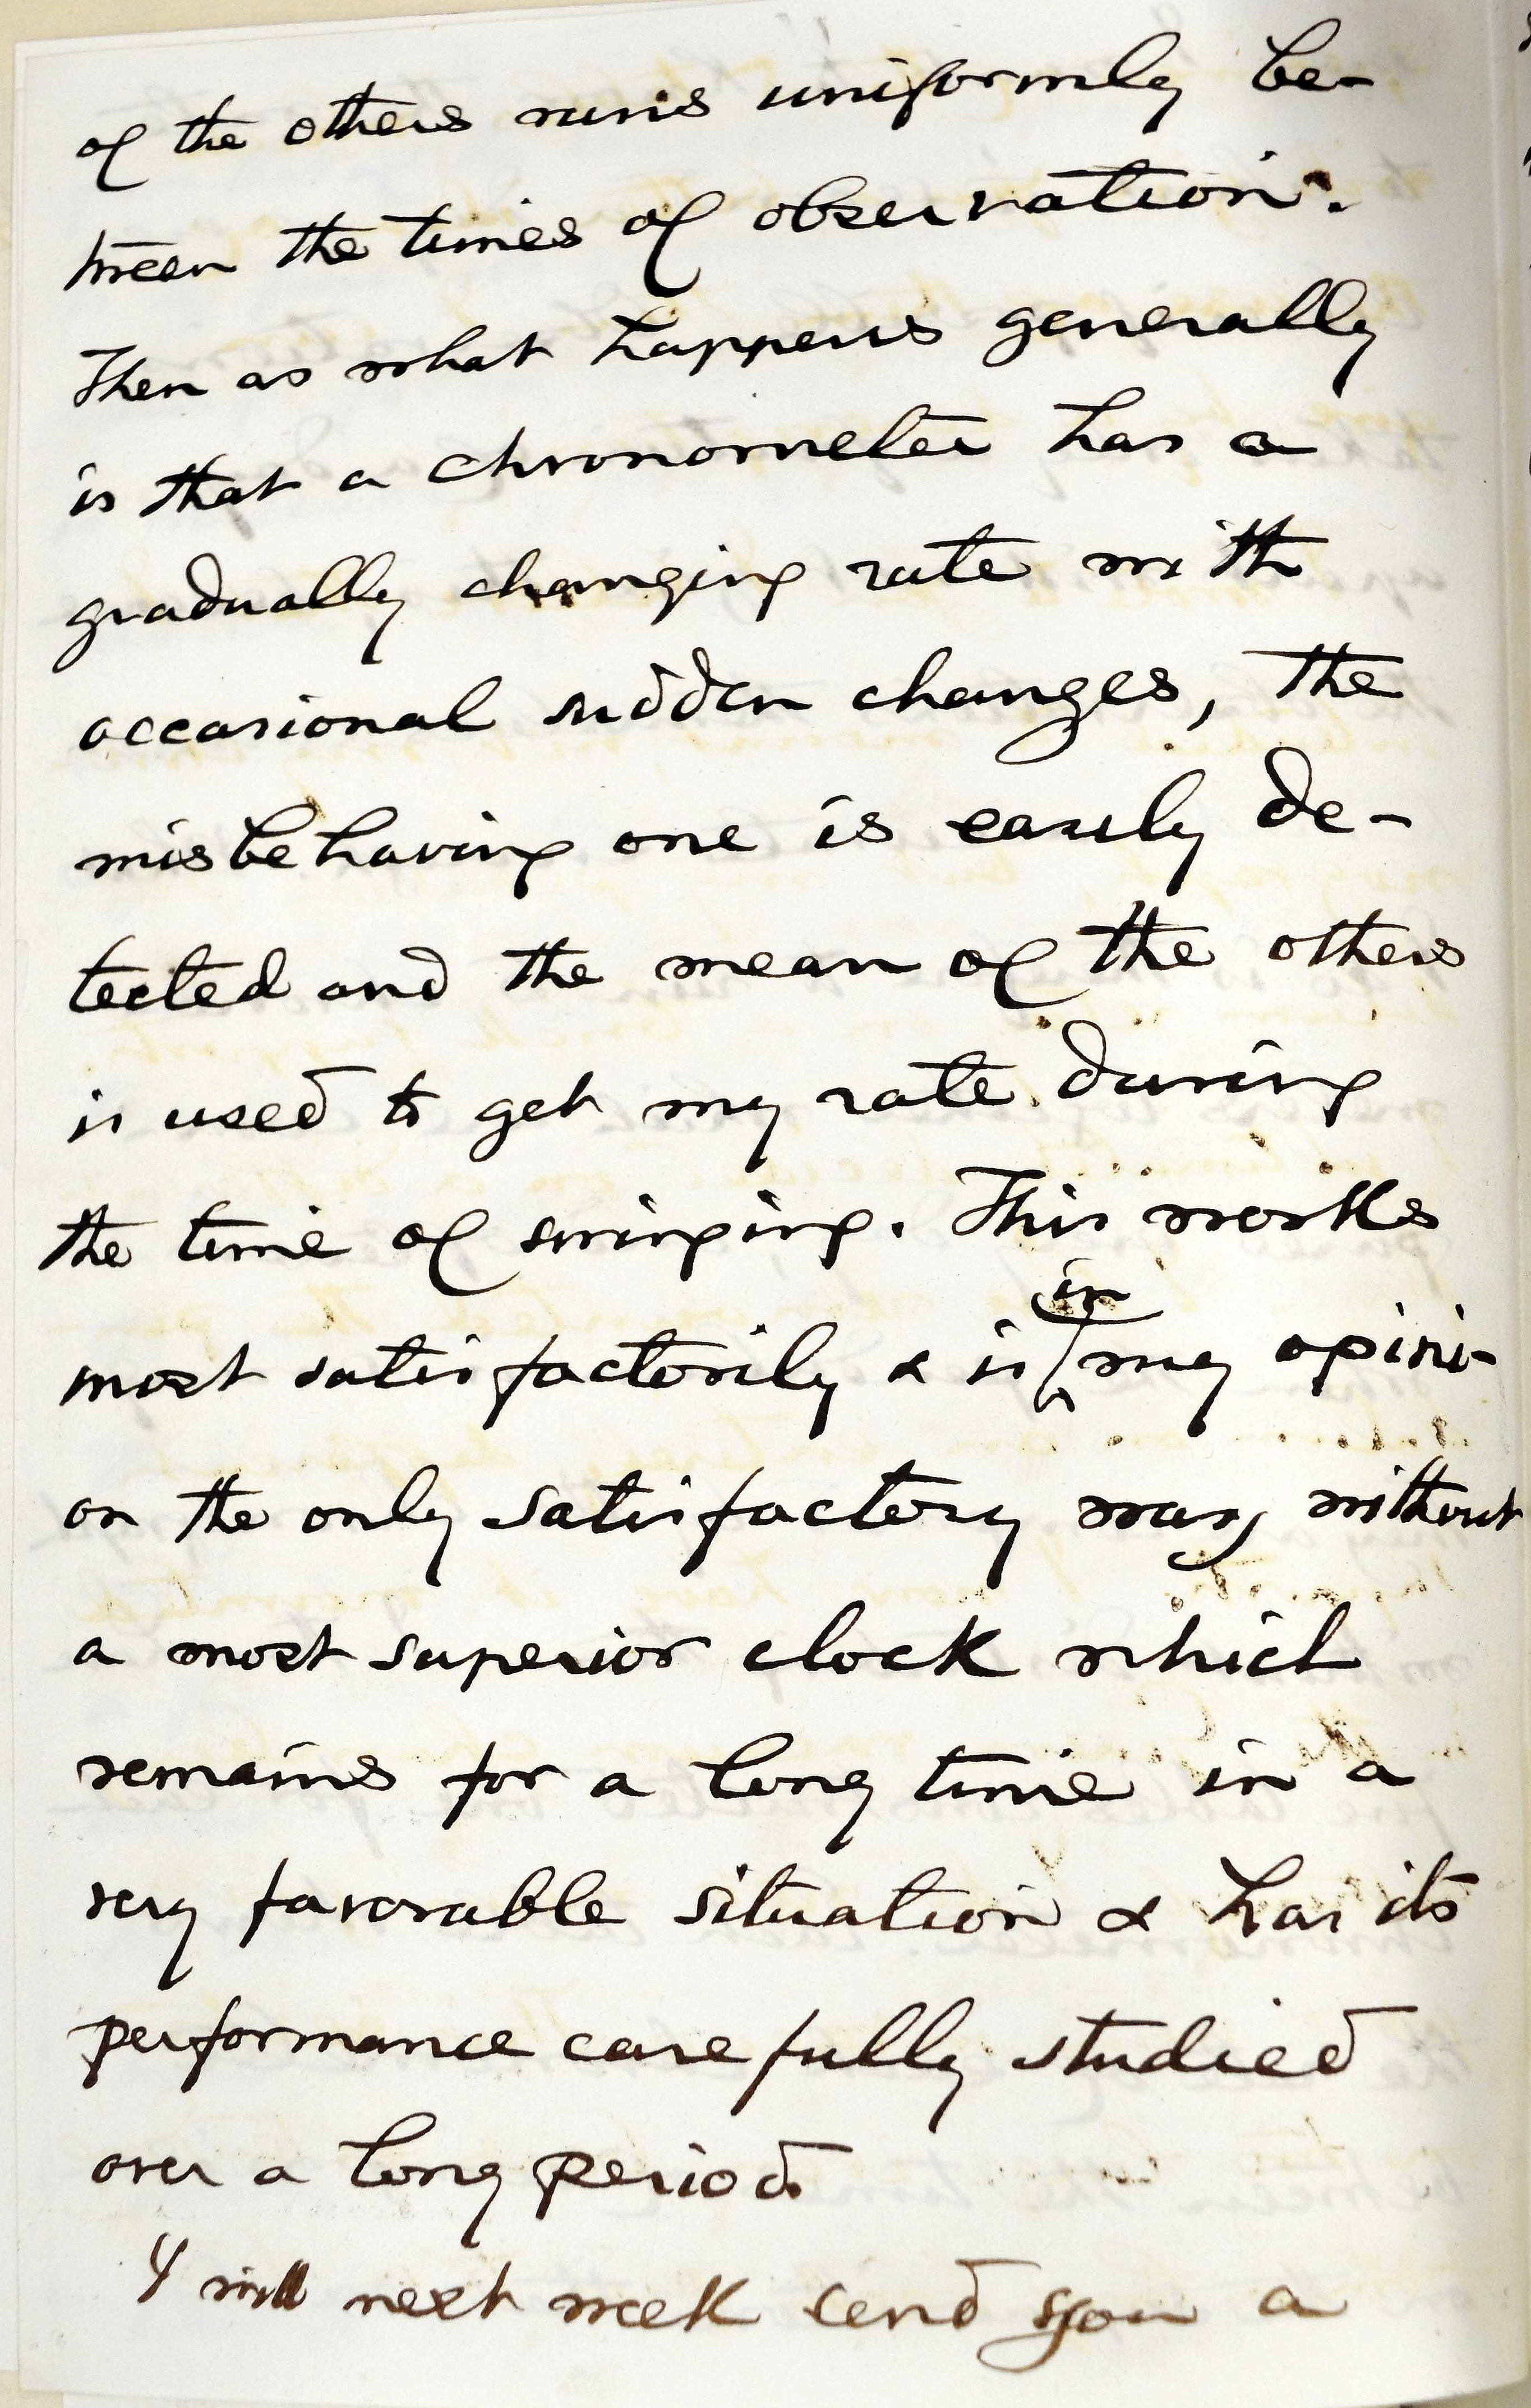 of the others runs uniformly be-
tween the times of observation.
Then as what happens generally
is that a chronometer has a
gradually changing rate with
occasional sudden changes, the
misbehaving one is easily de-
tected and the mean of the others
is used to get my rate during
the time of swinging. This works
in
most satisfactorily & is my opini-
on the only satisfactory way without
a most superior clock which
remains for a long time in a
very favorable situation & has its
performance carefully studied
over a long period.
I will next week send you a